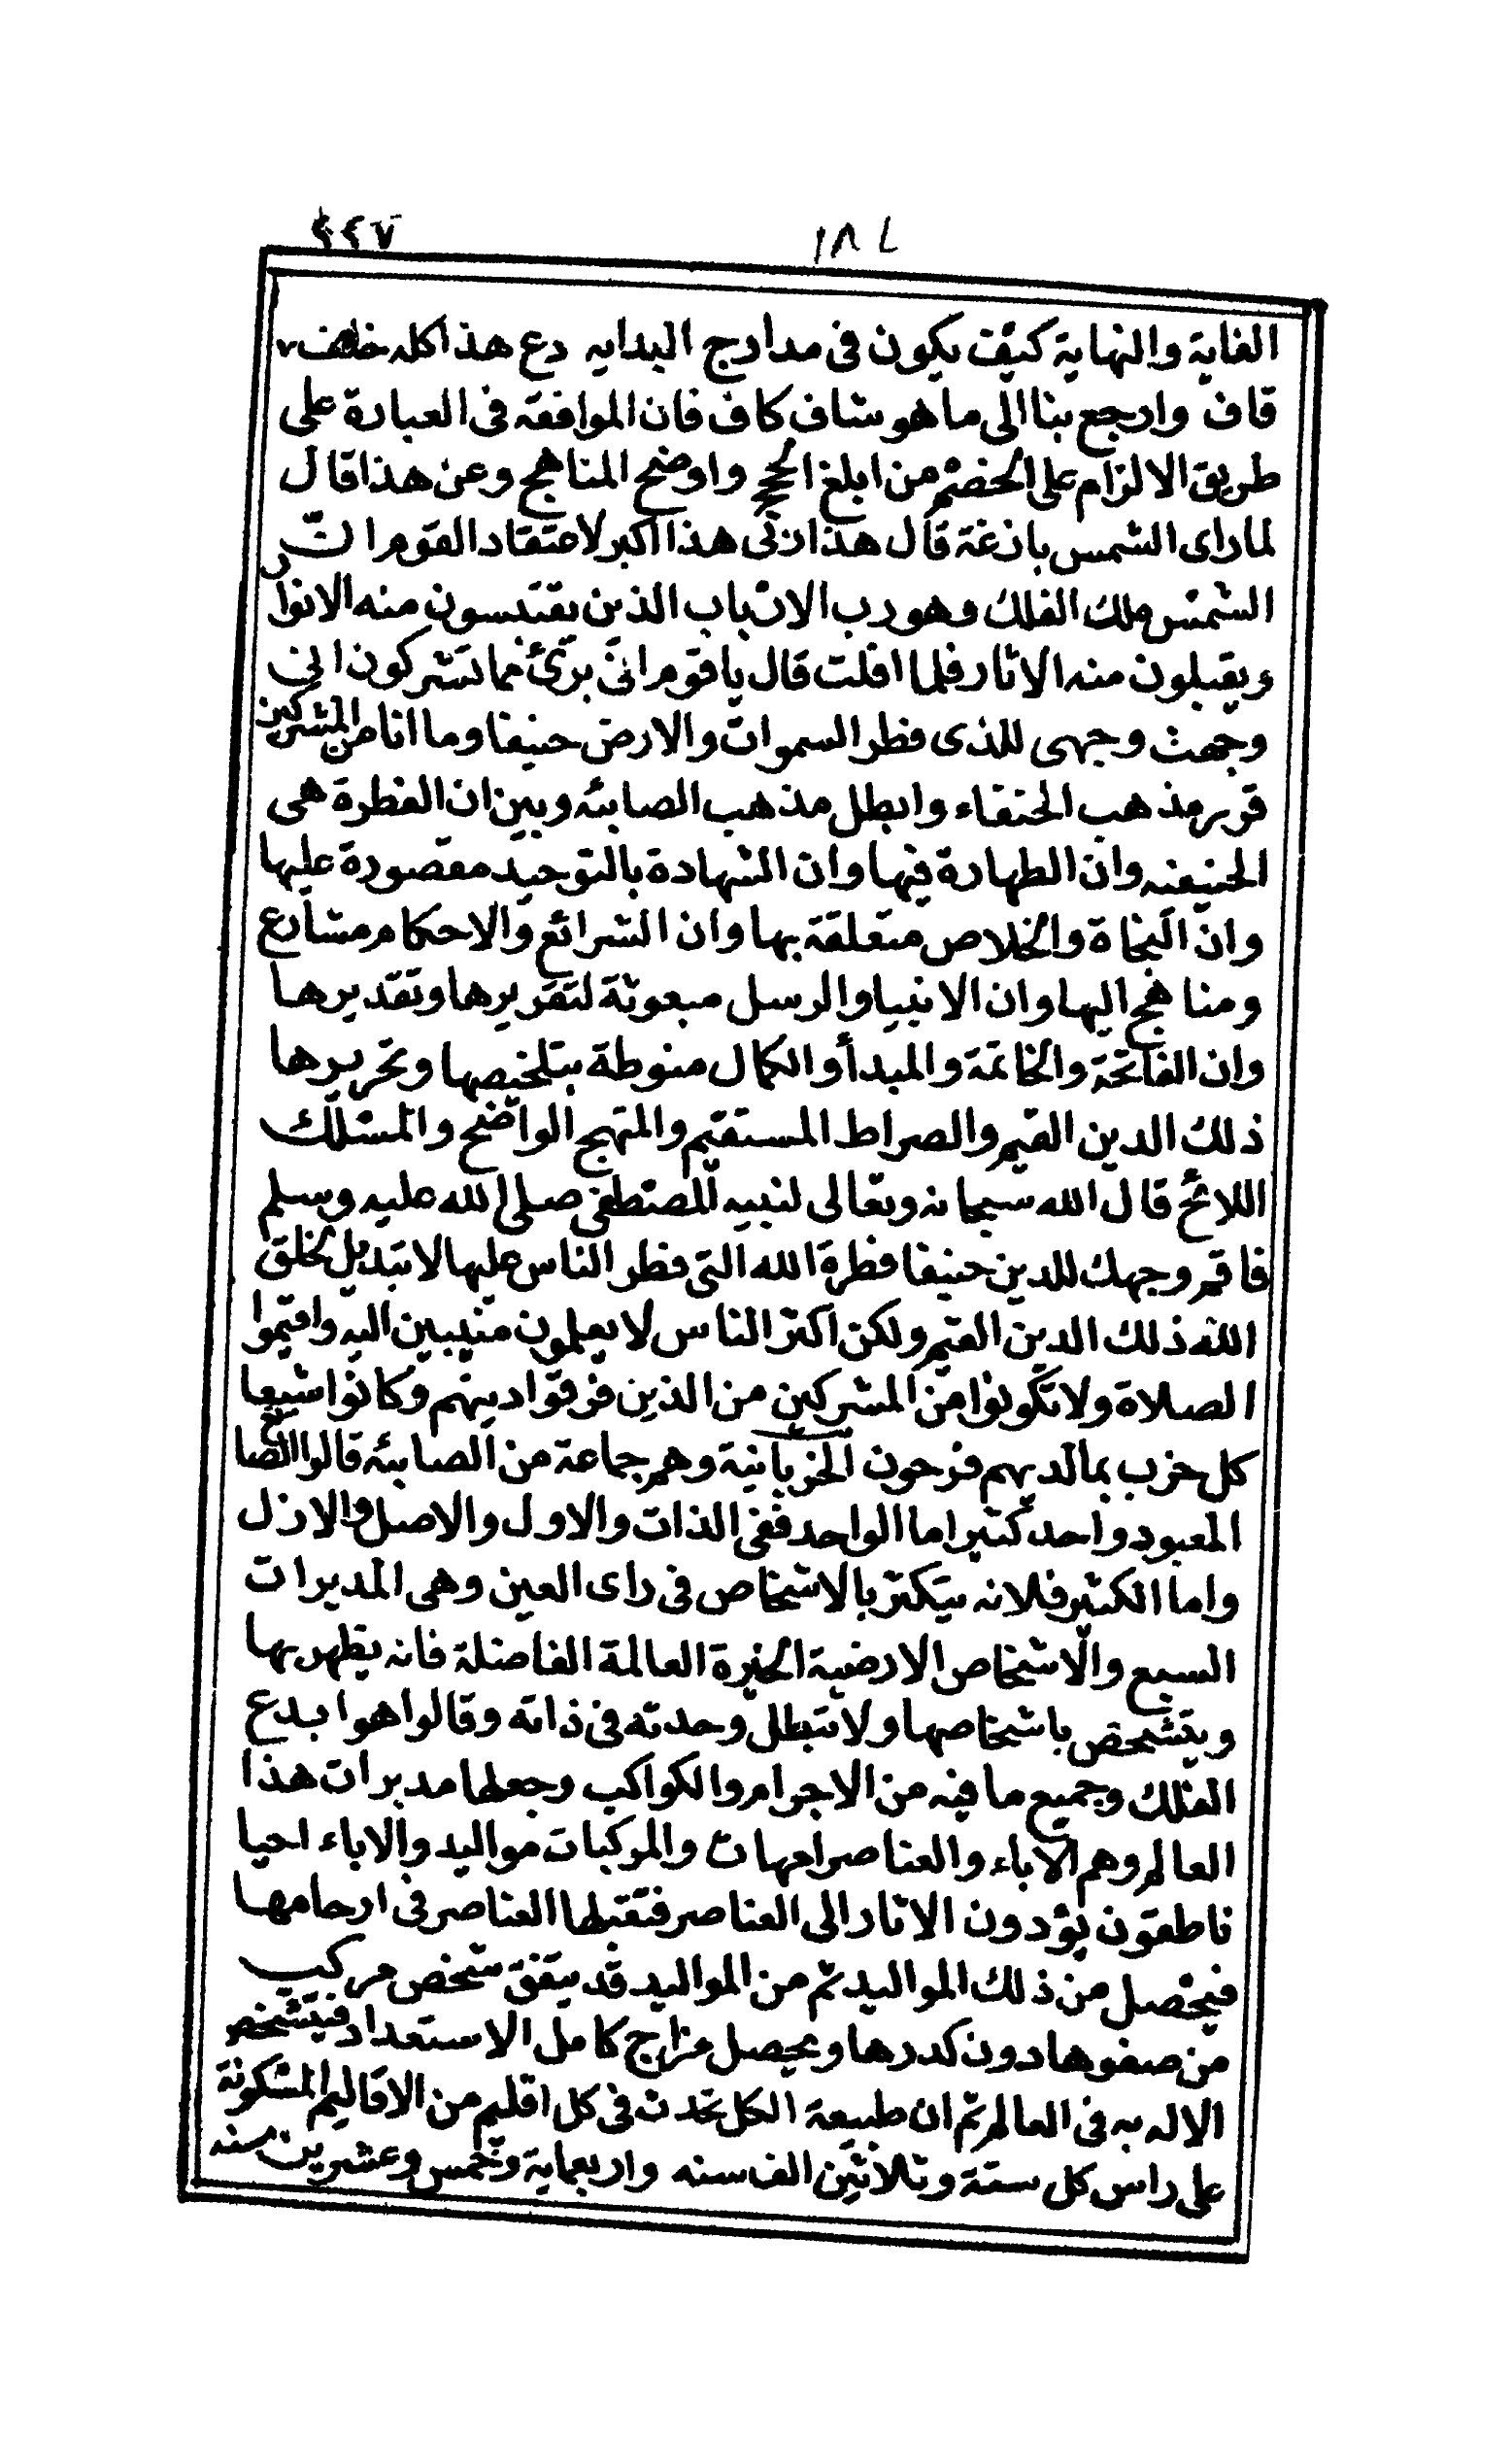 ٤٤٧
١٨٦
الغاية والنهاية كيف يكون فى مدارج البدايه دع هذا كله خلف
قاف وارجع بنا الى ما هو شاف كاف فان الموافقه فى العبارة على
طريق الالزام على الخصم من ابلغ الحجج واوضح المناهج وعن هذا قال
لما راى الشمس بازغة قال هذا ربى هذا اكبر لاعتقاد القوم ان
الشمس ملك الفلك وهو رب الارباب الذين يقتدسون منه الانوار
ويقبلون منه الاثار فلما افلت قال يا قوم انى برئ مما تشركون انى
وجهت وجهى للذى فطر السموات والارض حنيفا وما انا من المشركين
قرر مذهب الحنفاء وابطل مذهب الصابئه وبين ان الفطرة هى
الحنيفيه وان الطهارة فيها وان الشهادة بالتوحيد مقصورة عليها
وان النجاة والخلاص متعلقة بها وان الشرائع والاحكام مشارع
ومناهج اليها وان الانبيا والرسل مبعوثة لتقريرها وتقديرها
وان الفاتحة والخاتمة والمبدأ والكمال منوطة بتلخيصها وتحريرها
ذلك الدين القيم والصراط المستقيم والمنهج الواضح والمسلك
اللائح قال الله سبحانه وتعالى لنبيه المصطفى صلى الله عليه وسلم
فاقم وجهك للدين حنيفا فطرة الله التى فطر الناس عليها لا تبديل لخلق
الله ذلك الدين القيم ولكن اكثر الناس لا يعلمون منيبين اليه واقيموا
الصلاة ولا تكونوا من المشركين من الذين فرقوا دينهم وكانوا شيعا
كل حزب بما لديهم فرحون الخربانية وهم جماعة من الصابئه قالوا الصانع
المعبود واحد كثير اما الواحد ففى الذات والاول والاصل والازل
واما الكثير فلانه يتكثر بالاشخاص فى راى العين وهى المدبرات
السبع والاشخاص الارضية الخيرة العالمة الفاضلة فانه يظهر بها
ويتشخص باشخاصها ولا تبطل وحدته فى ذاته وقالوا هو ابدع
الفلك وجميع ما فيه من الاجرام والكواكب وجعلها مدبرات هذا
العالم وهم الاباء والعناصر امهات والمركبات مواليد والاباء احيا
ناطقون يؤدون الاثار الى العناصر فتقبلها العناصر فى ارحامها
فيحصل من ذلك المواليد ثم من المواليد قد يتفق شخص مركب
من صفوها دون كدرها ويحصل مزاج كامل الاستعداد فيتشخص
الاله به فى العالم ثم ان طبيعة الكل تحدث فى كل اقليم من الاقاليم المسكونة
على راس كل ستة وثلاثين الف سنه واربعماية وخمس وعشرين سنه